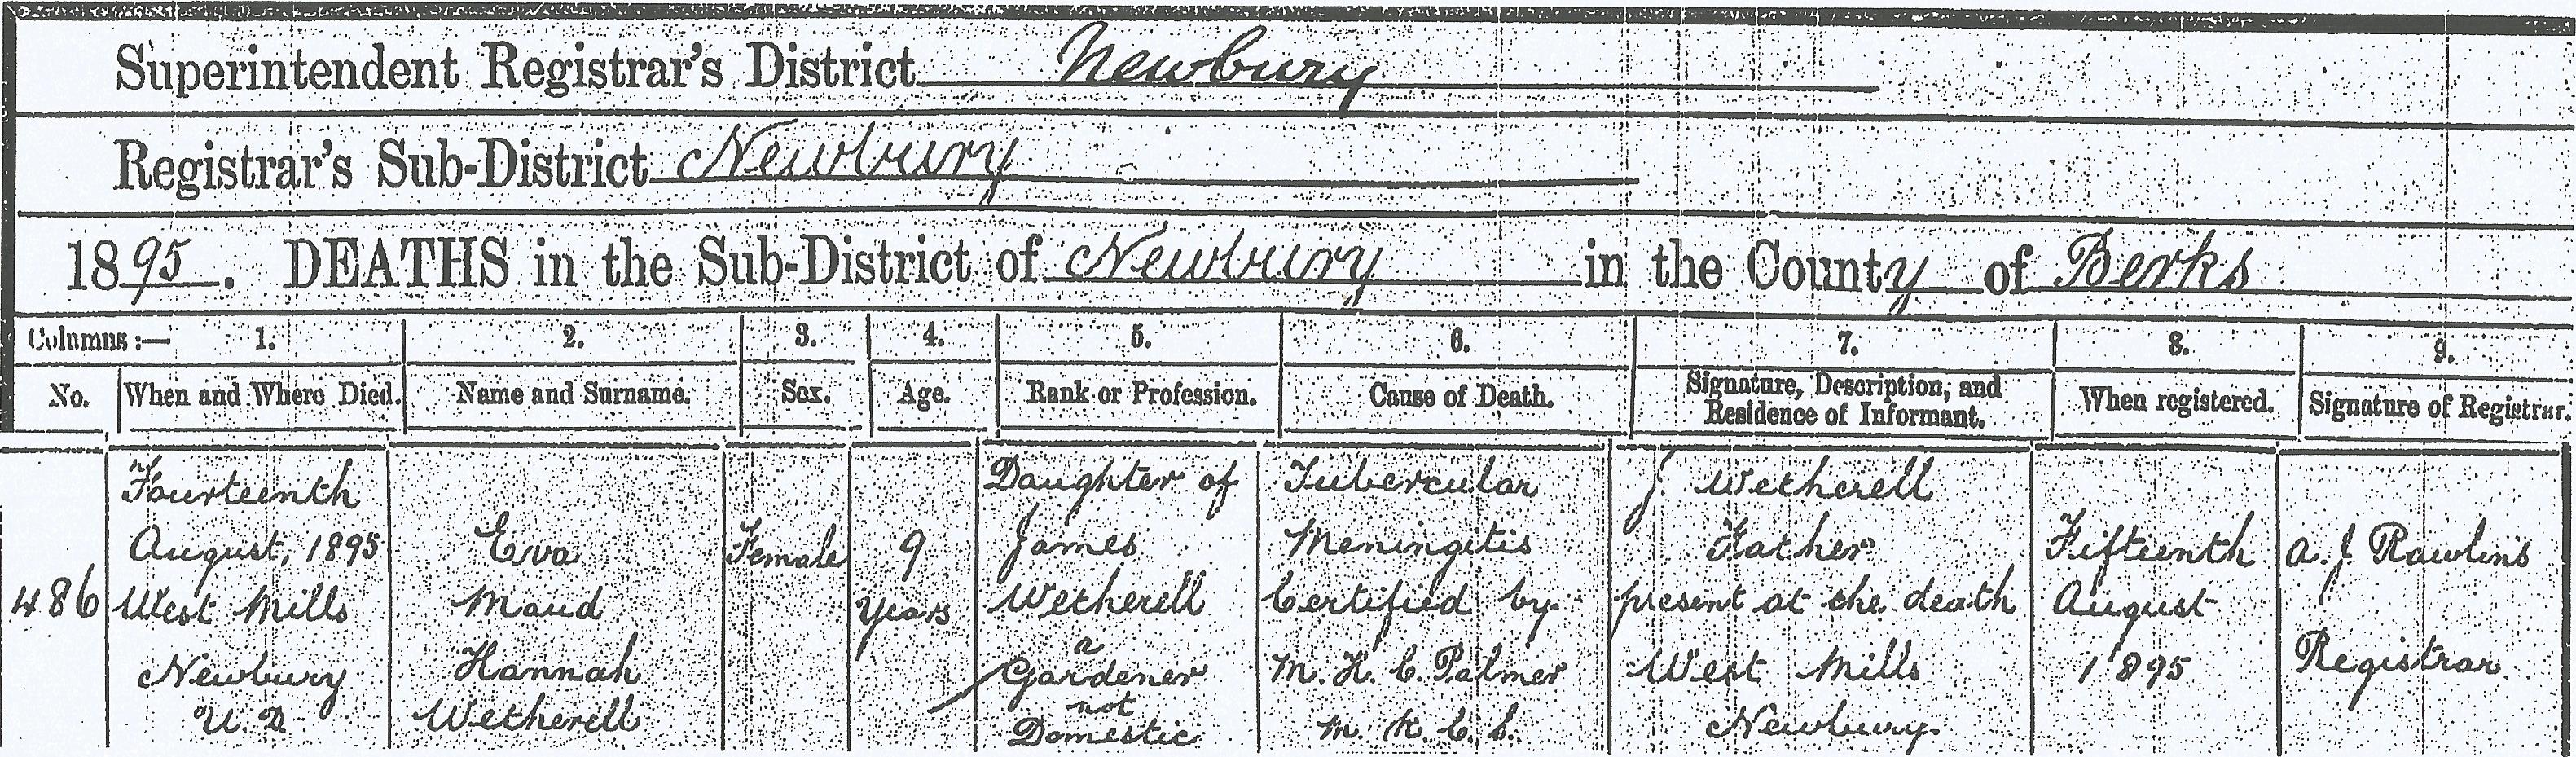 Superintendent Registrar's District Newbury
Registrar's Sub-District Newbury
1895. DEATHS in the Sub-District of Newbury in the County of Berks
Columns:— 1. 2. 3. 4. 5. 6. 7. 8. 9.
No. When and Where Died. Name and Surname. Sex. Age. Rank or Profession. Cause of Death. Signature, Description, and Residence of Informant. When registered. Signature of Registrar.
486
Fourteenth
August, 1895
West Mills
Newbury
U. D
Eva
Maud
Hannah
Wetherell
Female
9
Years
Daughter of
James
Wetherell
a
Gardener
not
Domestic
Tubercular
Meningitis
Certified by
M. H. C. Palmer
M. R. C. S.
J. Wetherell
Father
present at the death
West Mills
Newbury
Fifteenth
August
1895
A. J Rawlins
Registrar.